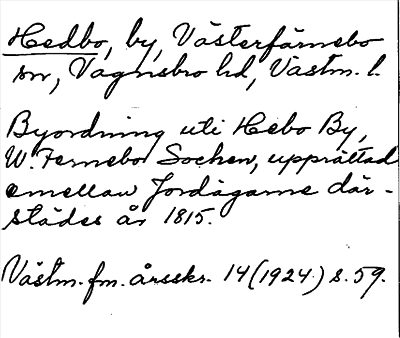 Hedbo, by, Västerfärnebo
sn, Vagnsbro hd, Västm. l.
Byordning uti Hebo By,
W. Fernebo Socken, upprättad
emellan Jordägarne där-
städes år 1815.
Västm. fm. årsskr. 14 (1924) s. 59.